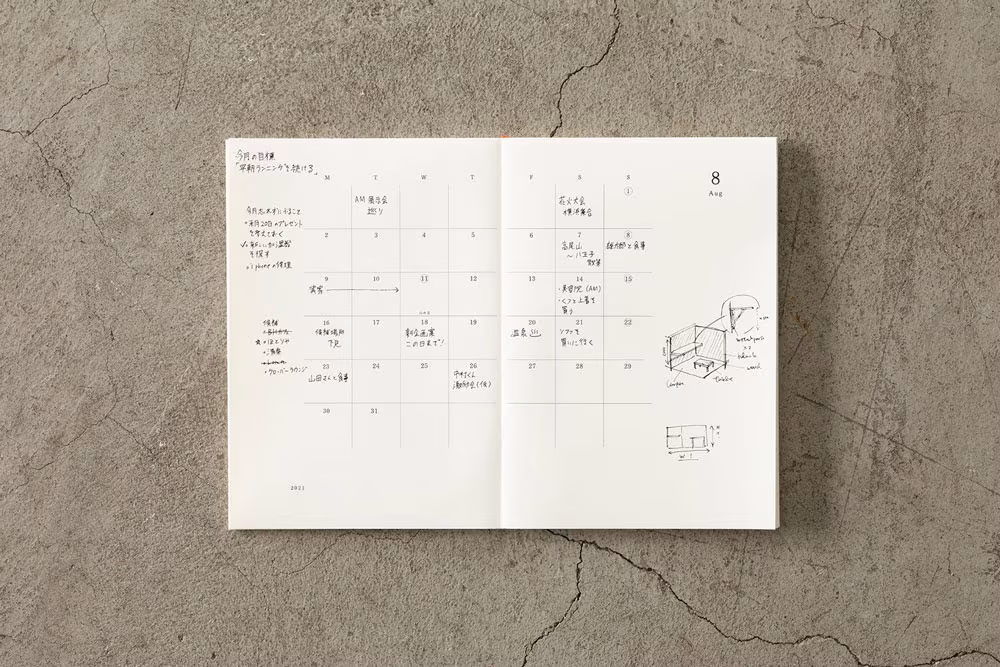 今月の目標
「早朝ランニングを続ける」
M T W T
F S S
8
Aug
①
AM 展示会
巡り
花火大会
横浜集合
今月忘れずにすること
・来月20日のプレゼント
を考えておく
を探す
・iPhoneの修理
2 3 4 5
6 7 ⑧
高尾山
〜八王子
散策
と食事
9 10 ⑪ 12
13 14 ⑮
実家
・美容院(AM)
・くつと上着を
買う
候補
16 17 18 19
20 21 22
候補場所
下見
新企画案
この日まで!
温泉
ソファを
買いに行く
・クローバーラウンジ
23 24 25 26
27 28 29
山田さんと食事
中村くん
激励会(仮)
30 31
wood
W
2021